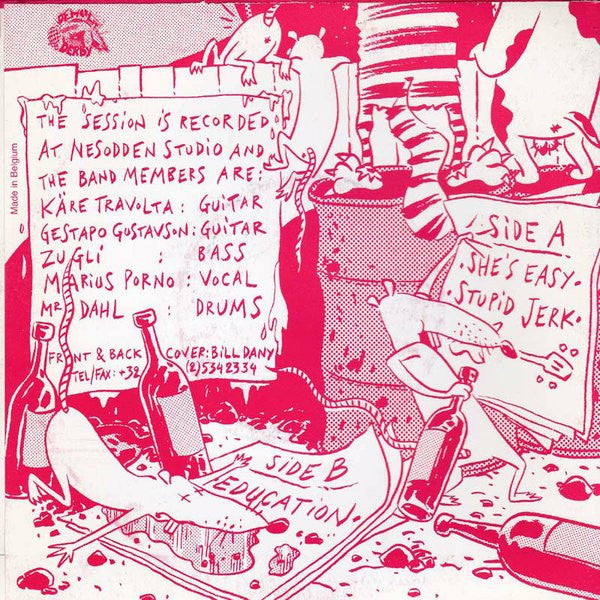 DEMOLITION
DERBY
Made in Belgium
THE SESSION IS RECORDED
AT NESODDEN STUDIO AND
THE BAND MEMBERS ARE:
KÄRE TRAVOLTA : GUITAR
GESTAPO GUSTAVSON: GUITAR
ZUGLI : BASS
MARIUS PORNO : VOCAL
MR DAHL : DRUMS
FRONT & BACK COVER: BILL DANY
TEL/FAX: +32 (2)5342334
SIDE A
•SHE'S EASY•
•STUPID JERK•
SIDE B
•EDUCATION•